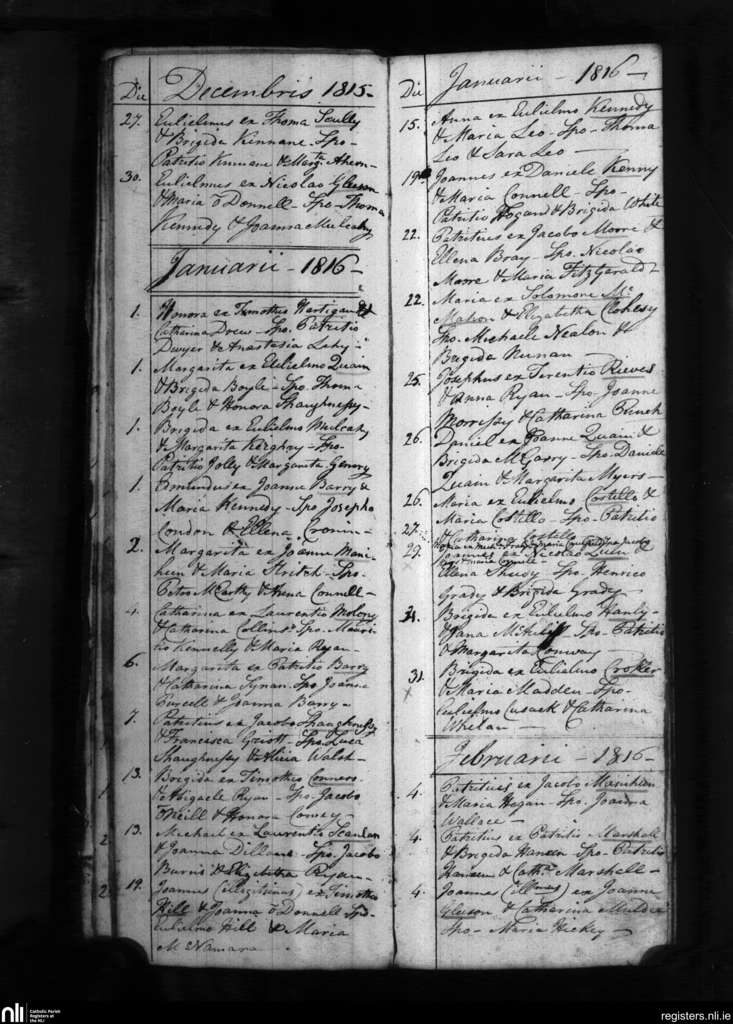 Die
Decembris 1815
27. Eulielmus ex Thoma Scully
& Brigida Kinnane Spo-
Patritio Kinnane & Margta Ahern
30. Eulielmus ex Nicolao Gleeson
& Maria O Donnell Spo- Thoma
Kennedy & Joanna Mulcahy
Januarii - 1816 -
1. Honora ex Timotheo Hartigan &
Catharina Drew - Spo. Patritio
Dwyer & Anastasia Lahy -
1. Margarita ex Eulielmo Quain
& Brigida Boyle - Spo. Thoma
Boyle & Honora Shaughnessy -
1. Brigida ex Eulielmo Mulcahy
& Margarita Keighry - Spo-
Patritio Jolly & Margarita
1. Edmundus ex Joanne Barry &
Maria Kennedy - Spo Josepho
Condon & Ellena Cronin -
2. Margarita ex Joanne Mani-
heen & Maria Stritch - Spo-
Petro McCarthy & Anna Connell -
4. Catharina ex Laurentio Molony
& Catharina Collins Spo. Mauri-
tio Kennelly & Maria Ryan -
6. Margarita ex Patritio Barry
& Catharina Synan - Spo Joanne
Purcell & Joanna Barry -
7. Patritius ex Jacobo Shaughnessy
& Francisca Spo. Luca
Shaughnessy & Alicia Walsh -
13. Brigida ex Timotheo Connors
& Abigaele Ryan - Spo. Jacobo
ONeill & Honora
13. Michael ex Laurentio Scanlan
& Joanna Dillane - Spo. Jacobo
& Elizabetha Ryan -
19. Joannes (illegitimus) ex Timotheo
Hill & Joanna O Donnell Spo-
Eulielmo Hill & Maria
McNamara
Die
Januarii - 1816 -
15. Anna ex Eulielmo Kennedy
& Maria Leo - Spo - Thoma
Leo & Sara Leo -
19 Joannes ex Daniele Kenny
& Maria Connell - Spo-
Patritio Hogan & Brigida White
22. Patritius ex Jacobo Moore &
Ellena Bray - Spo. Nicolao
Moore & Maria FitzGerald
22. Maria ex Solomone Mc
Mahon & Elizabetha Clohesy
Spo. Michaele Nealon &
Brigida Nunan
25. Josephus ex Terentio Reeves
& Anna Ryan - Spo. Joanne
Morrissy & Catharina
26. Daniel ex Joanne Quain &
Brigida McGarry - Spo. Daniele
Quain & Margarita Myers -
26. Maria ex Eulielmo Costello &
Maria Costello - Spo. Patritio
& Catharina Costello
27.
29. Joannes ex Nicolao &
Ellena Spo. Henrico
Grady & Brigida Grady -
31. Brigida ex Eulielmo Hanly
& Jana Spo. Patritio
& Margarita Conway -
31. Brigida ex Eulielmo Croker
& Maria Madden - Spo-
Eulielmo Cusack & Catharina
Whelan -
Februarii - 1816 -
4. Patritius ex Jacobo Manihan
& Maria Hogan - Spo. Joanna
Wallace -
4. Patritius ex Patritio Marshall
& Brigida Spo - Patritio
& Catha Marshall -
4. Joannes ex Joanne
Gleeson & Catharina
Spo - Maria Hickey -
nli
Catholic Parish
Registers at
the NLI
registers.nli.ie